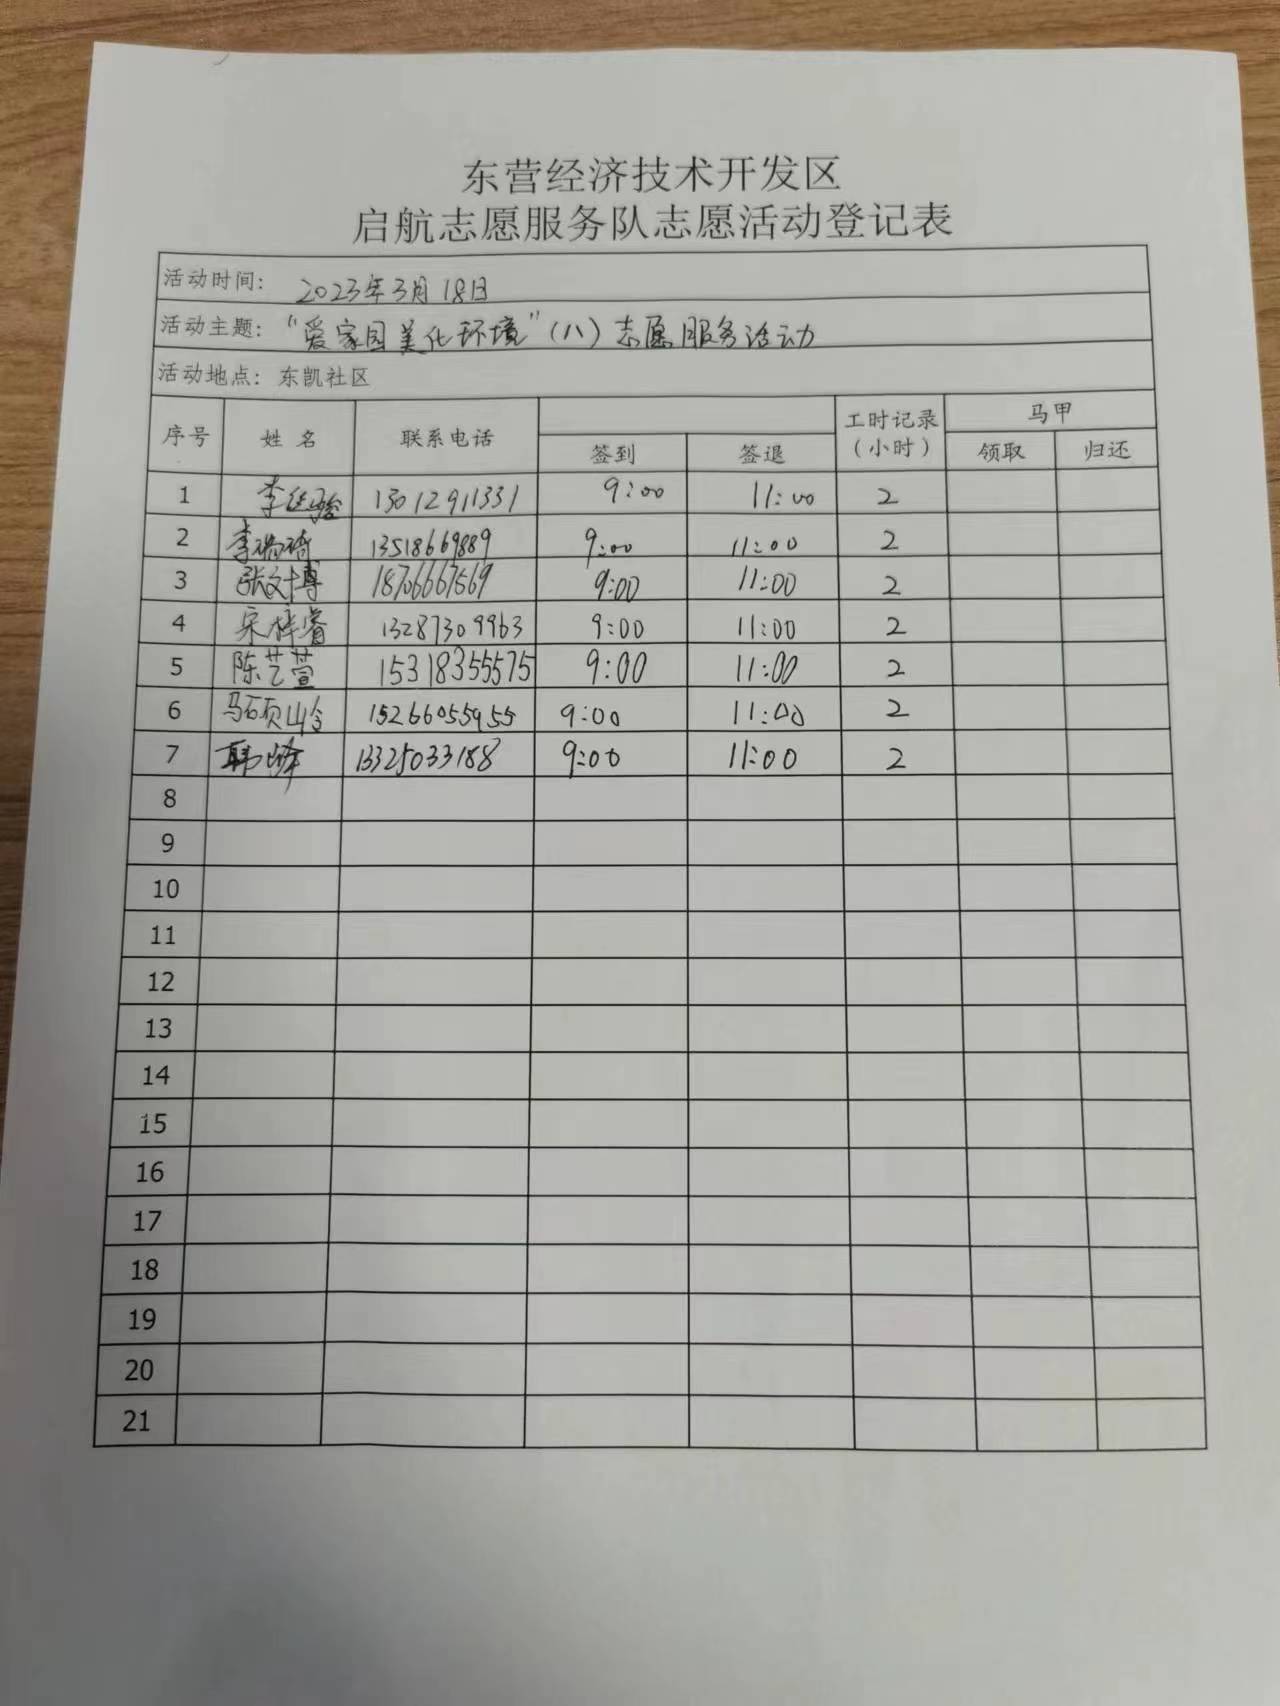 东营经济技术开发区
启航志愿服务队志愿活动登记表
活动时间: 2023年3月18日
活动主题: "爱家园美化环境"(八)志愿服务活动
活动地点: 东凯社区
序号 姓名 联系电话 签到 签退 工时记录(小时) 马甲 领取 归还
1 李延骏 13012911331 9:00 11:00 2
2 李瑞琦 13518669889 9:00 11:00 2
3 张文博 18706667569 9:00 11:00 2
4 宋梓睿 13287309963 9:00 11:00 2
5 陈艺萱 15318355575 9:00 11:00 2
6 马硕岭 15266055955 9:00 11:00 2
7 韩峰 13325033188 9:00 11:00 2
8
9
10
11
12
13
14
15
16
17
18
19
20
21